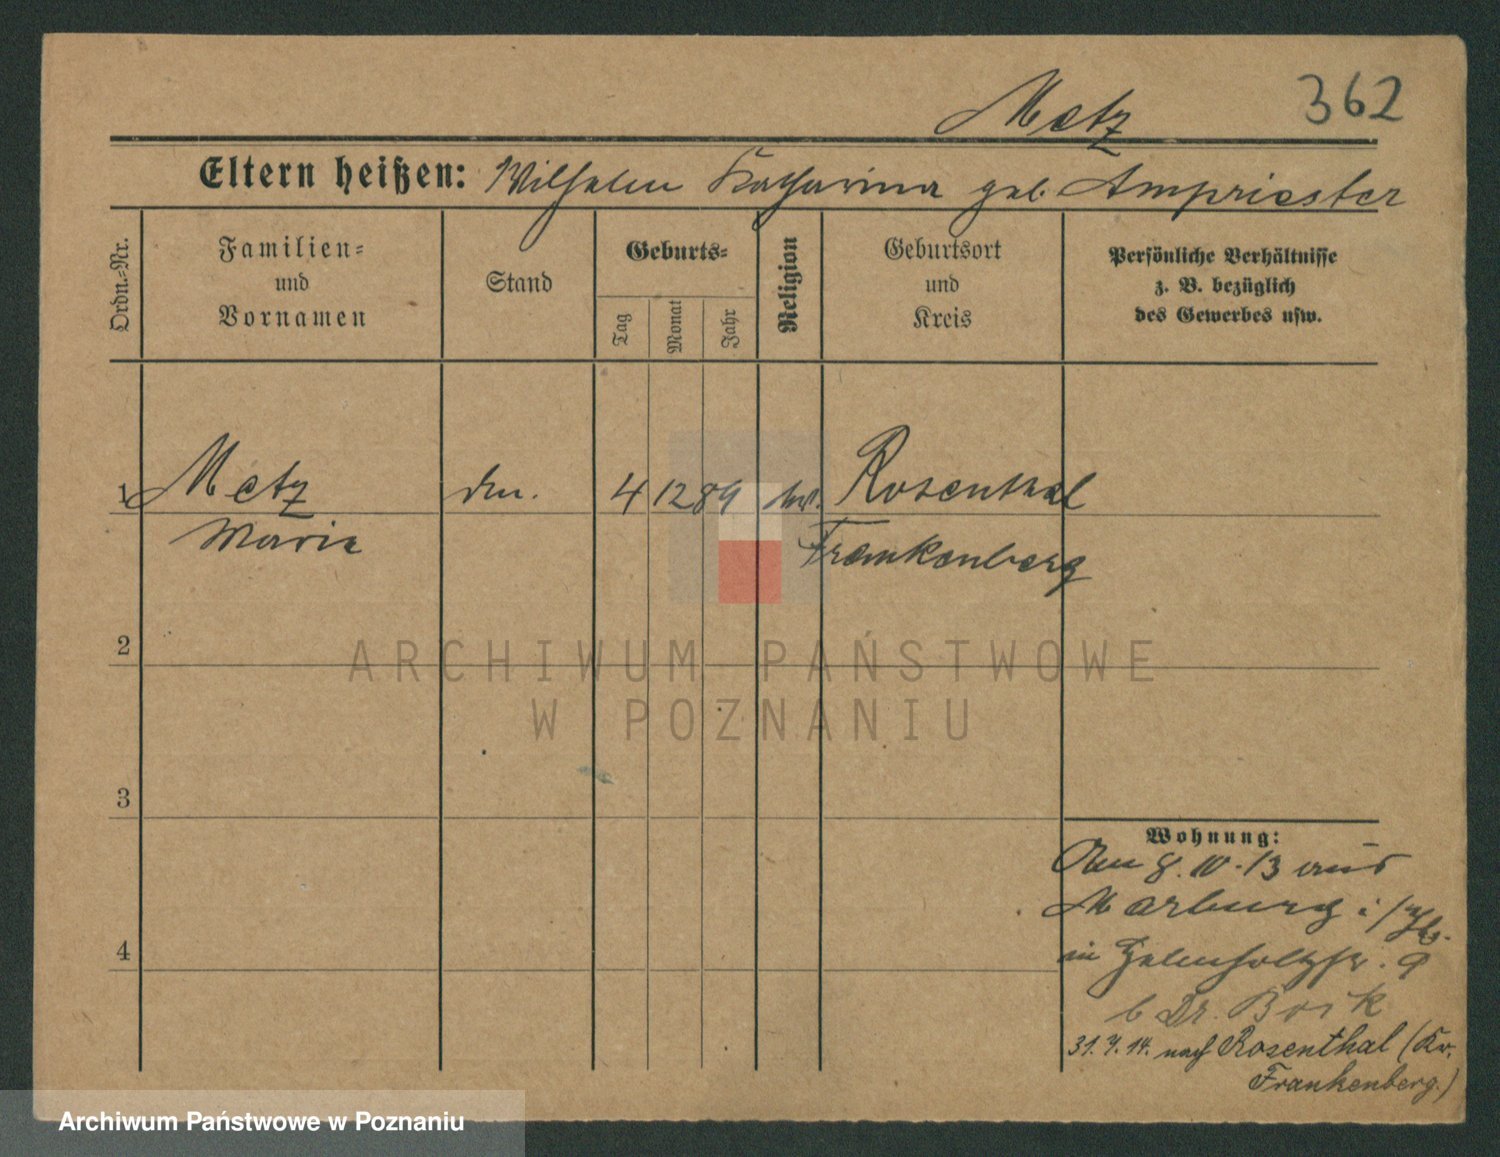 Metz 362
Eltern heißen: Wilhelm Katharina geb. Ampriester
Ordn.-Nr.
Familien-
und
Vornamen
Stand
Geburts-
Tag
Monat
Jahr
Religion
Geburtsort
und
Kreis
Persönliche Verhältnisse
z. B. bezüglich
des Gewerbes usw.
1 Metz 4 12 89 Rosenthal
Marie Frankenberg
2
3
4
Wohnung:
Am 8. IV. 13 aus
Marburg i/
in Helmholtzstr. 9
b Dr. Bork
31. 7. 14. nach Rosenthal (Kr.
Frankenberg.)
ARCHIWUM PAŃSTWOWE
W POZNANIU
Archiwum Państwowe w Poznaniu